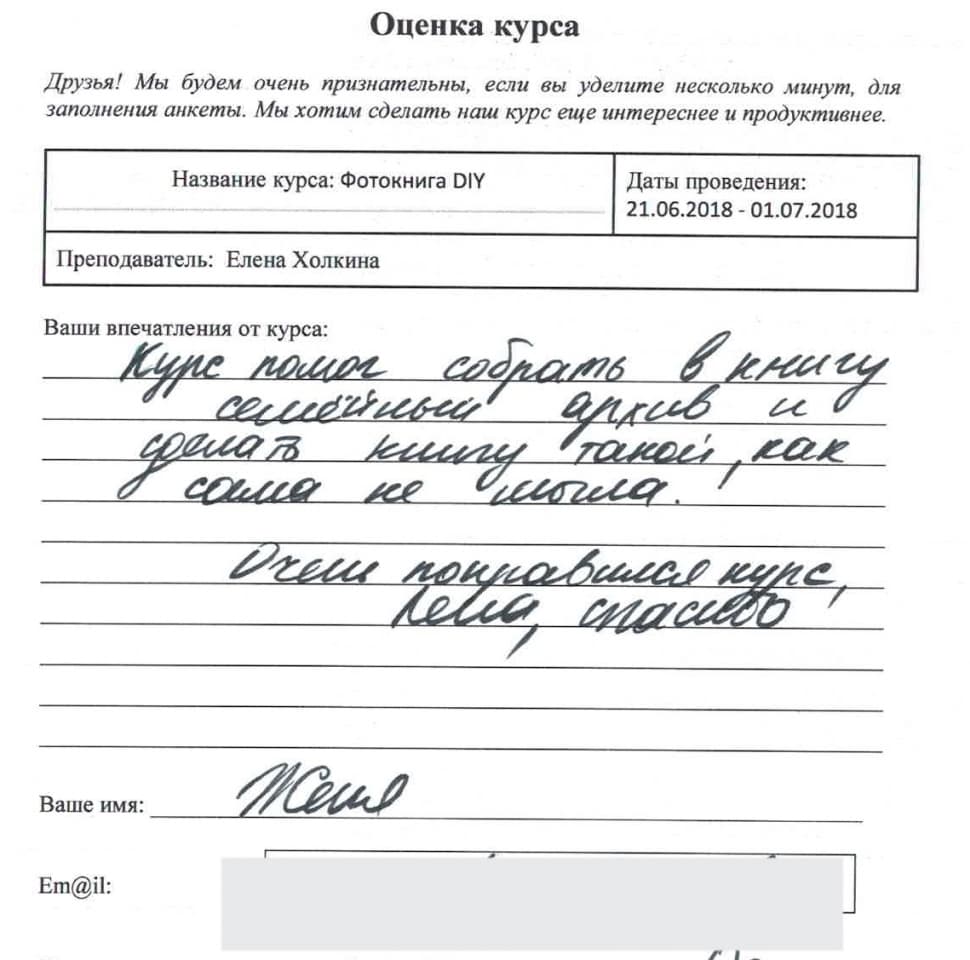 Оценка курса
Друзья! Мы будем очень признательны, если вы уделите несколько минут, для
заполнения анкеты. Мы хотим сделать наш курс еще интереснее и продуктивнее.
Название курса: Фотокнига DIY
Даты проведения:
21.06.2018 - 01.07.2018
Преподаватель: Елена Холкина
Ваши впечатления от курса:
Курс помог собрать в книгу
семейный архив и
сделать книгу такой, как
сама не могла.
Очень понравился курс,
Лена, спасибо
Ваше имя: Женя
Em@il: